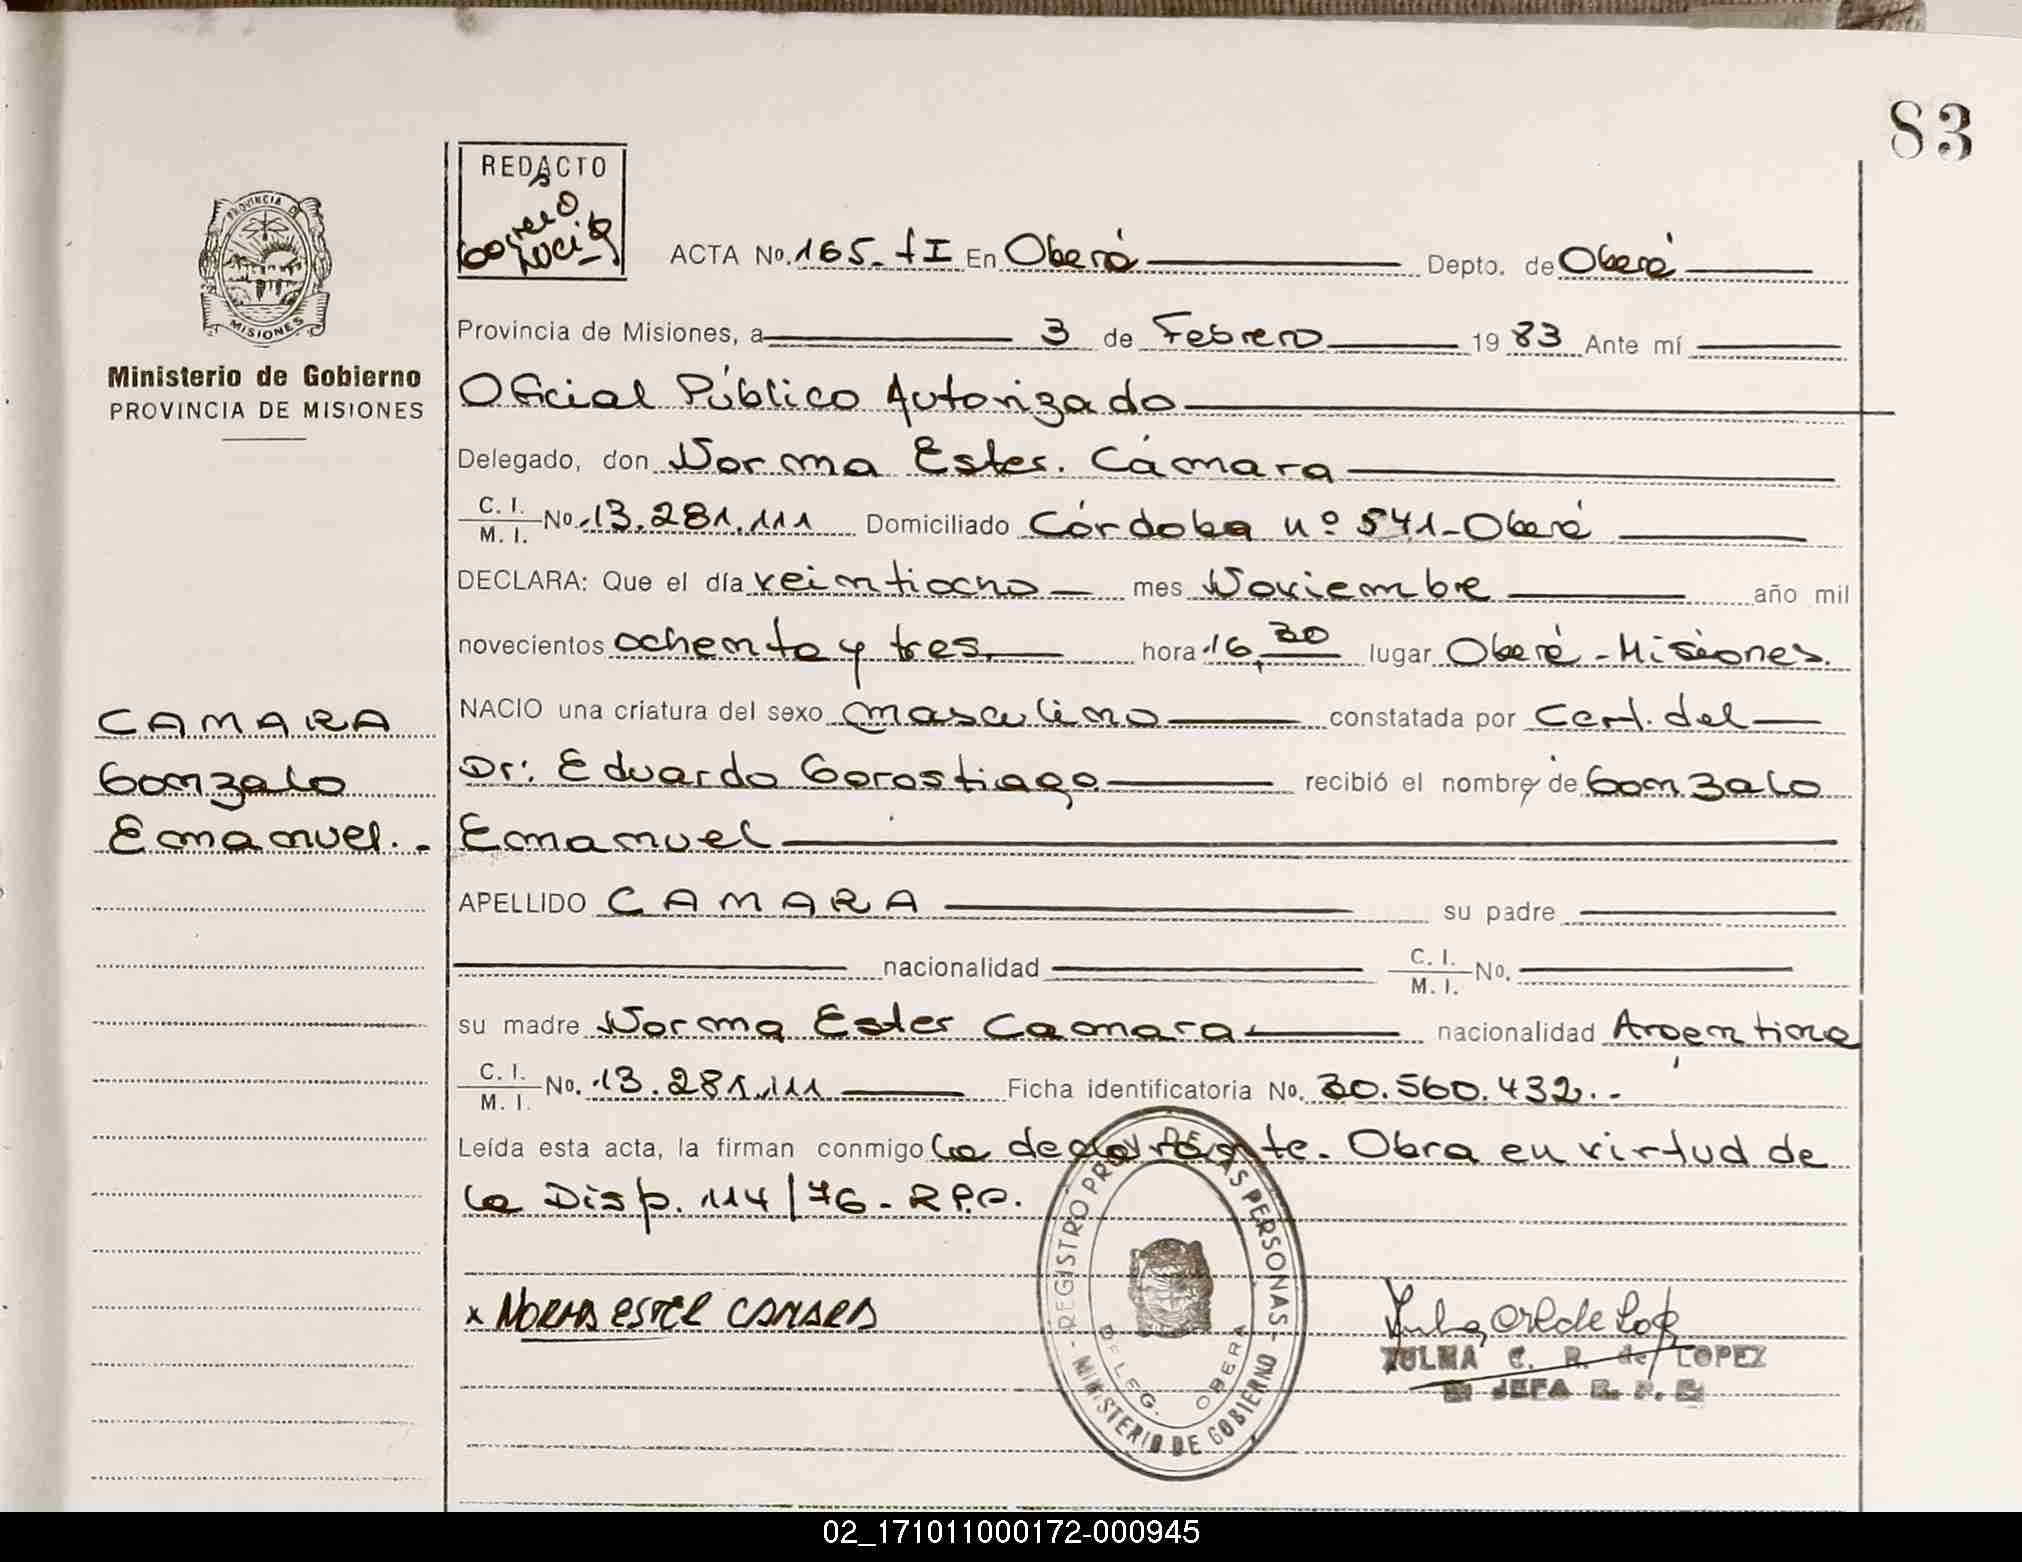 83
REDACTO
PROVINCIA DE
MISIONES
Ministerio de Gobierno
PROVINCIA DE MISIONES
ACTA No. 165-fI En Oberá Depto. de Oberá
Provincia de Misiones, a 3 de Febrero 1983 Ante mí
Oficial Público Autorizado
Delegado, don Norma Ester Cámara
C. I.
M. I. No. 13.281.111 Domiciliado Córdoba nº 541-Oberá
DECLARA: Que el día veintiocho mes Noviembre año mil
novecientos ochenta y tres hora 16,30 lugar Oberá - Misiones.
NACIO una criatura del sexo masculino constatada por Cert. del
Dr: Eduardo Gorostiaga recibió el nombre de Gonzalo
Emanuel
CAMARA
Gonzalo
Emanuel.-
APELLIDO CAMARA su padre
nacionalidad C. I.
M. I. No.
su madre Norma Ester Camara nacionalidad Argentina
C. I.
M. I. No. 13.281.111 Ficha identificatoria No. 30.560.432.-
Leída esta acta, la firman conmigo la declarante. Obra en virtud de
la Disp. 114/76- R.P.P.
x NORMA ESTER CAMARA
REGISTRO PROV. DE LAS PERSONAS
MINISTERIO DE GOBIERNO
DELEG. OBERA
ZULMA C. R. de LOPEZ
JEFA R. P. P.
02_171011000172-000945